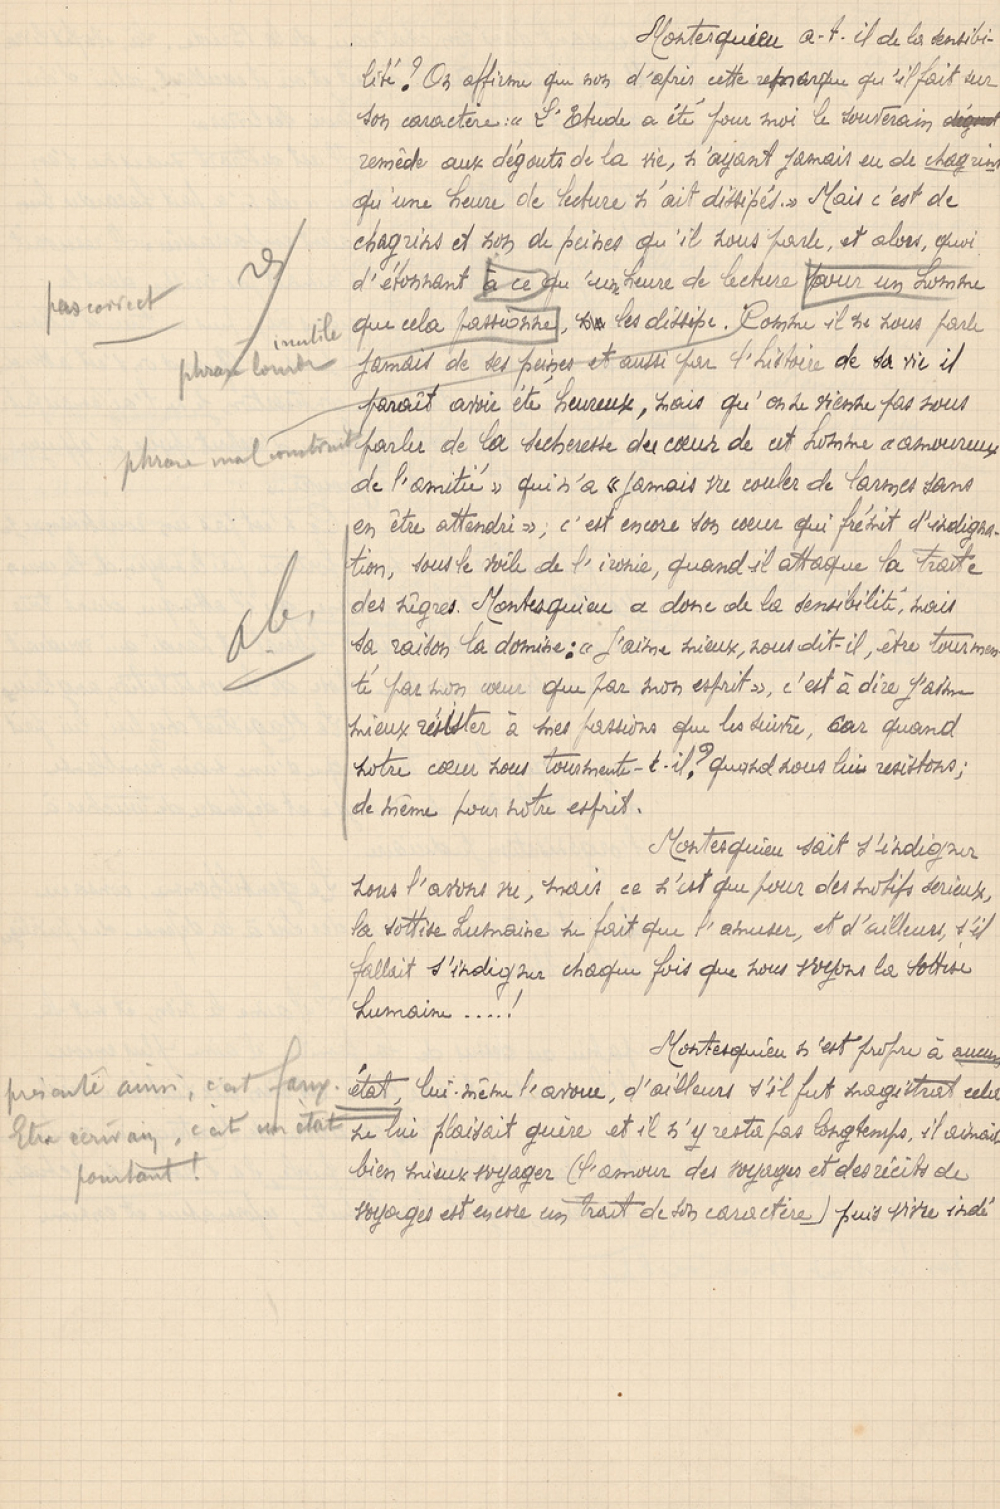 Montesquieu a-t-il de la sensibi-
lité? On affirme que non d'après cette remarque qu'il fait sur
son caractère: « L'Etude a été pour moi le souverain
remède aux dégouts de la vie, n'ayant jamais eu de chagrins
qu'une heure de lecture n'ait dissipés. » Mais c'est de
chagrins et non de peines qu'il nous parle, et alors, quoi
d'étonnant à ce qu'une heure de lecture pour un homme
pas correct
que cela passionne, les dissipe. Comme il ne nous parle
inutile
jamais de ses peines et aussi par l'histoire de sa vie il
phrase lourde
paraît avoir été heureux, mais qu'on ne vienne pas nous
parler de la secheresse du cœur de cet homme « amoureux
phrase mal construite
de l'amitié » qui n'a « jamais vu couler de larmes sans
en être attendri »; c'est encore son cœur qui frémit d'indigna-
tion, sous le voile de l'ironie, quand il attaque la traite
des nègres. Montesquieu a donc de la sensibilité, mais
ab.
sa raison la domine: « J'aime mieux, nous dit-il, être tourmen
té par mon cœur que par mon esprit », c'est à dire j'aime
mieux résister à mes passions que les suivre, car quand
notre cœur nous tourmente-t-il? quand nous lui resistons;
de même pour notre esprit.
Montesquieu sait s'indigner
nous l'avons vu, mais ce n'est que pour des motifs serieux,
la sottise humaine ne fait que l'amuser, et d'ailleurs, s'il
fallait s'indigner chaque fois que nous voyons la sottise
humaine .....!
Montesquieu n'est propre à aucun
présenté ainsi, c'est faux.
état, lui-même l'avoue, d'ailleurs s'il fut magistrat cela
Etre écrivain, c'est un état
ne lui plaisait guère et il n'y resta pas longtemps, il aimait
pourtant!
bien mieux voyager (l'amour des voyages et des récits de
voyages est encore un trait de son caractère) puis vivre indé